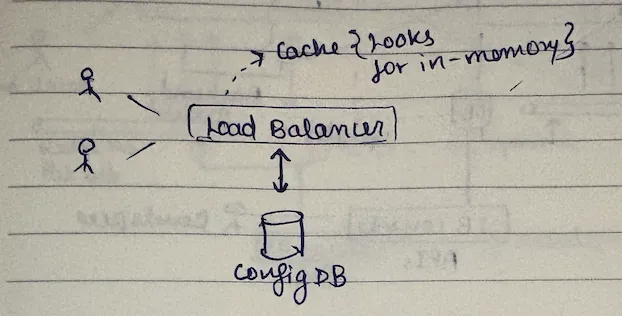 Cache {Looks
for in-memory}
Load Balancer
Config DB